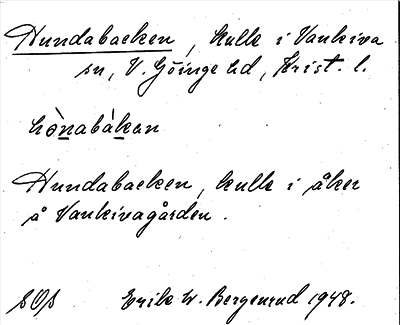 Hundabacken, kulle i Vankiva
sn, V. Göinge hd, Krist. l.
hònabàkan
Hundabacken, kulle i åker
å Vankivagården.
Erik W. Bergenrud 1948.